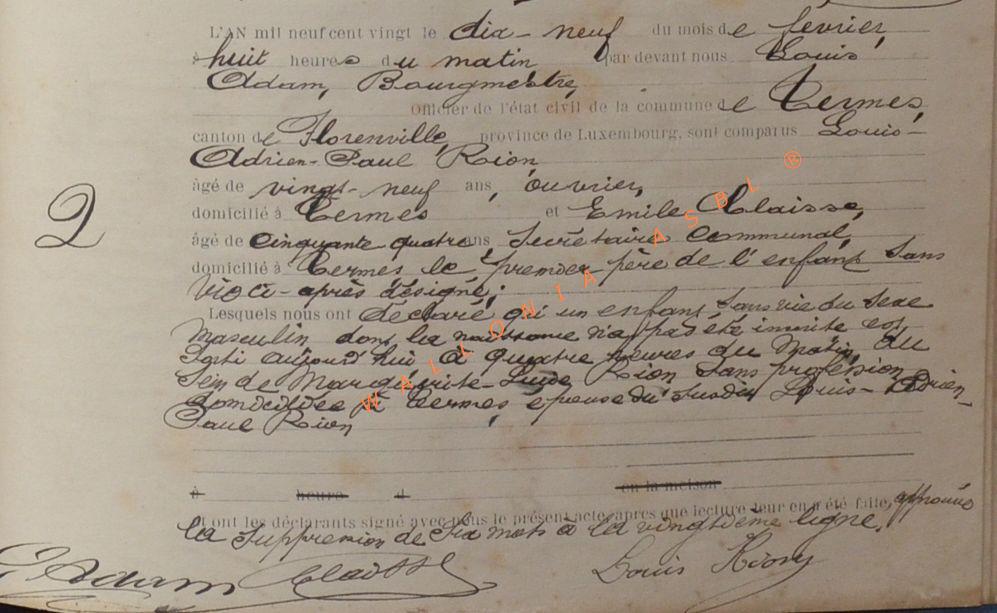 L'AN mil neuf cent vingt le dix-neuf du mois de février
à huit heures du matin par devant nous Louis
Adam, Bourgmestre,
Officier de l'état civil de la commune de Termes,
canton de Florenville, province de Luxembourg, sont comparus Louis-
Adrien-Paul Rion
âgé de vingt-neuf ans, ouvrier,
domicilié à Termes et Emile Claisse,
âgé de cinquante quatre ans, Secrétaire communal,
domicilié à Termes le premier père de l'enfant sans
vie ci-après désigné;
Lesquels nous ont déclaré qu'un enfant sans vie du sexe
masculin dont la naissance n'a pas été inscrite est
sorti aujourd'hui à quatre heures du matin, du
sein de Marguerite-Lucie Rion sans profession
domiciliée à Termes, épouse du susdit Louis-Adrien-
Paul Rion
2
à heure d en la maison
Et ont les déclarants signé avec nous le présent acte après que lecture leur en a été faite, approuvée
la suppression de six mots à la vingtième ligne.
L. Adam Claisse Louis Rion
WALLONIA ASBL ®